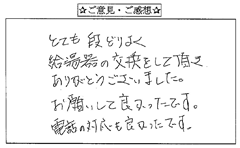 ☆ご意見・ご感想☆
とても段どりよく
給湯器の交換をして頂き
ありがとうございました。
お願いして良かったです。
電話の対応も良かったです。